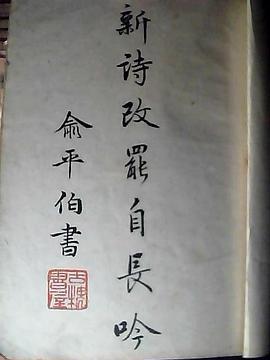 新詩改罷自長吟
俞平伯書